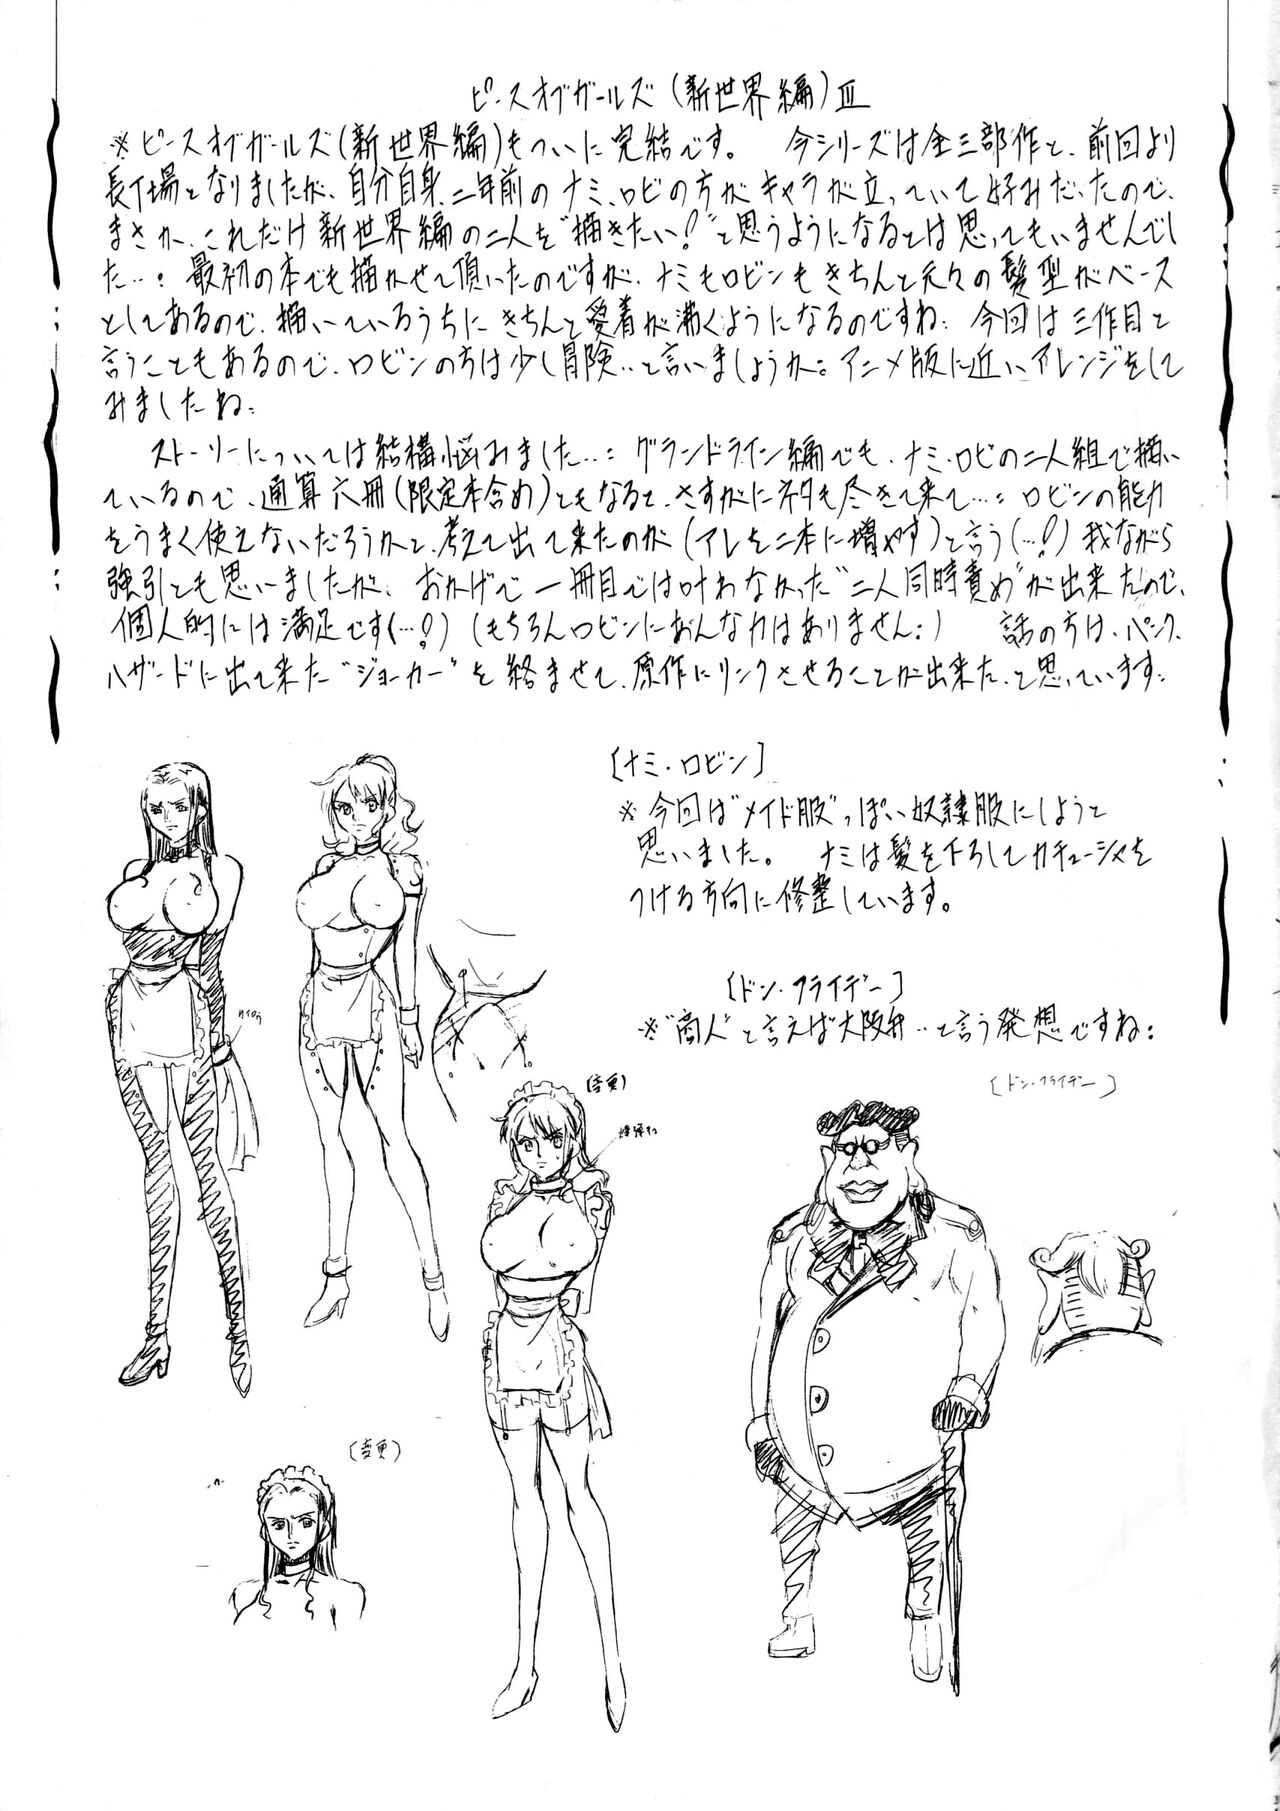 ピースオブガールズ(新世界編)Ⅲ
※ピースオブガールズ(新世界編)もついに完結です。 今シリーズは全三部作と、前回より
長丁場となりましたが、自分自身、二年前のナミ、ロビの方がキャラが立っていて好みだったので、
まさか、これだけ新世界編の二人を“描きたい!”と思うようになるとは思ってもいませんでし
た…。最初の本でも描かせて頂いたのですが、ナミもロビンもきちんと元々の髪型がベース
としてあるので、描いているうちにきちんと愛着が沸くようになるのですね。今回は三作目と
言うこともあるので、ロビンの方は少し冒険‥と言いましょうか。アニメ版に近いアレンジをして
みましたね。
ストーリーについては結構悩みました…。グランドライン編でも、ナミ・ロビの二人組で描い
ているので、通算六冊(限定本含め)ともなると、さすがにネタも尽きて来て…。ロビンの能力
をうまく使えないだろうかと、考えて出て来たのが(アレを二本に増やす)と言う(…!?)我ながら
強引とも思いましたが、おかげで一冊目では叶わなかった“二人同時責め”が出来たので、
個人的には満足です(…!?)(もちろんロビンにあんな力はありません。) 話の方は、パンク
ハザードに出て来た“ジョーカー”を絡ませて、原作にリンクさせることが出来た、と思っています。
[ナミ・ロビン]
※今回は“メイド服”っぽい奴隷服にしようと
思いました。 ナミは髪を下ろしてカチューシャを
つける方向に修整しています。
[ドン・フライデー]
※“商人”と言えば大阪弁‥と言う発想ですね。
[ドン・フライデー]
(変更)
(変更)